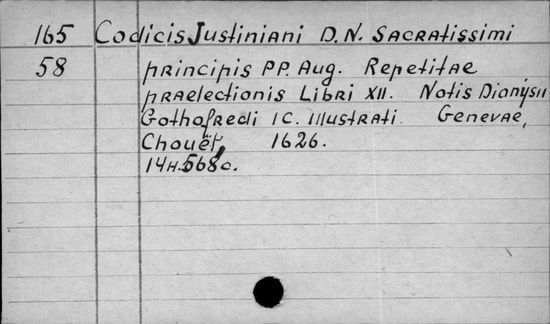 165 Codicis Justiniani D. N. Sacratissimi
58 principis PP. Aug. Repetitae
praelectionis Libri XII. Notis Dionysii
Gothofredi IC. illustrati. Genevae,
Chouët, 1626.
14H.568c.